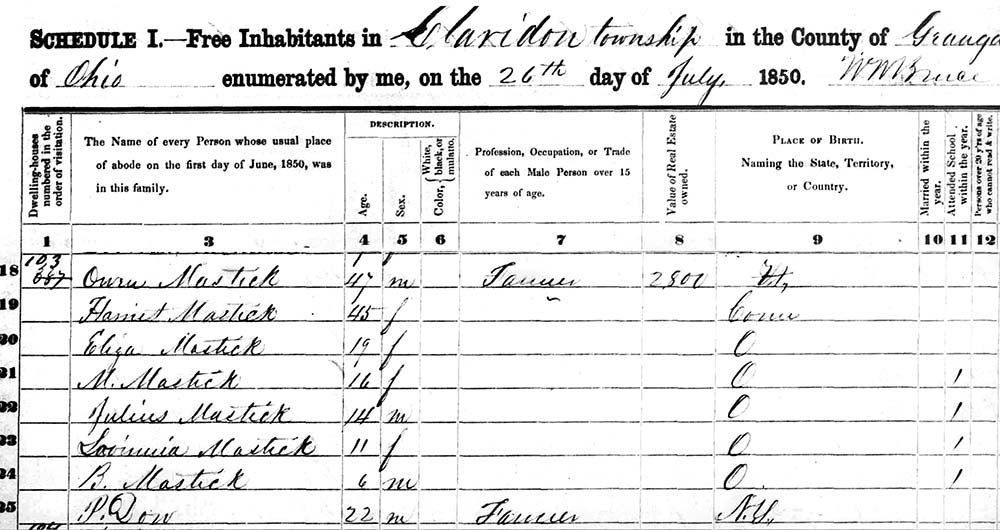 SCHEDULE I.—Free Inhabitants in Claridon township in the County of Geauga
of Ohio enumerated by me, on the 26th day of July, 1850. W W Bruce
Dwelling-houses numbered in the order of visitation. The Name of every Person whose usual place of abode on the first day of June, 1850, was in this family. DESCRIPTION. Age. Sex. Color, White, black, or mulatto. Profession, Occupation, or Trade of each Male Person over 15 years of age. Value of Real Estate owned. PLACE OF BIRTH. Naming the State, Territory, or Country. Married within the year. Attended School within the year. Persons over 20 y'rs of age who cannot read & write.
1 3 4 5 6 7 8 9 10 11 12
103
18 Owen Mastick 47 m Farmer 2800 Vt,
19 Harriet Mastick 45 f Conn
20 Eliza Mastick 19 f O
21 M. Mastick 16 f O 1
22 Julius Mastick 14 m O 1
23 Mastick 11 f O 1
24 B. Mastick 6 m O 1
25 P. Dow 22 m Farmer N.Y,